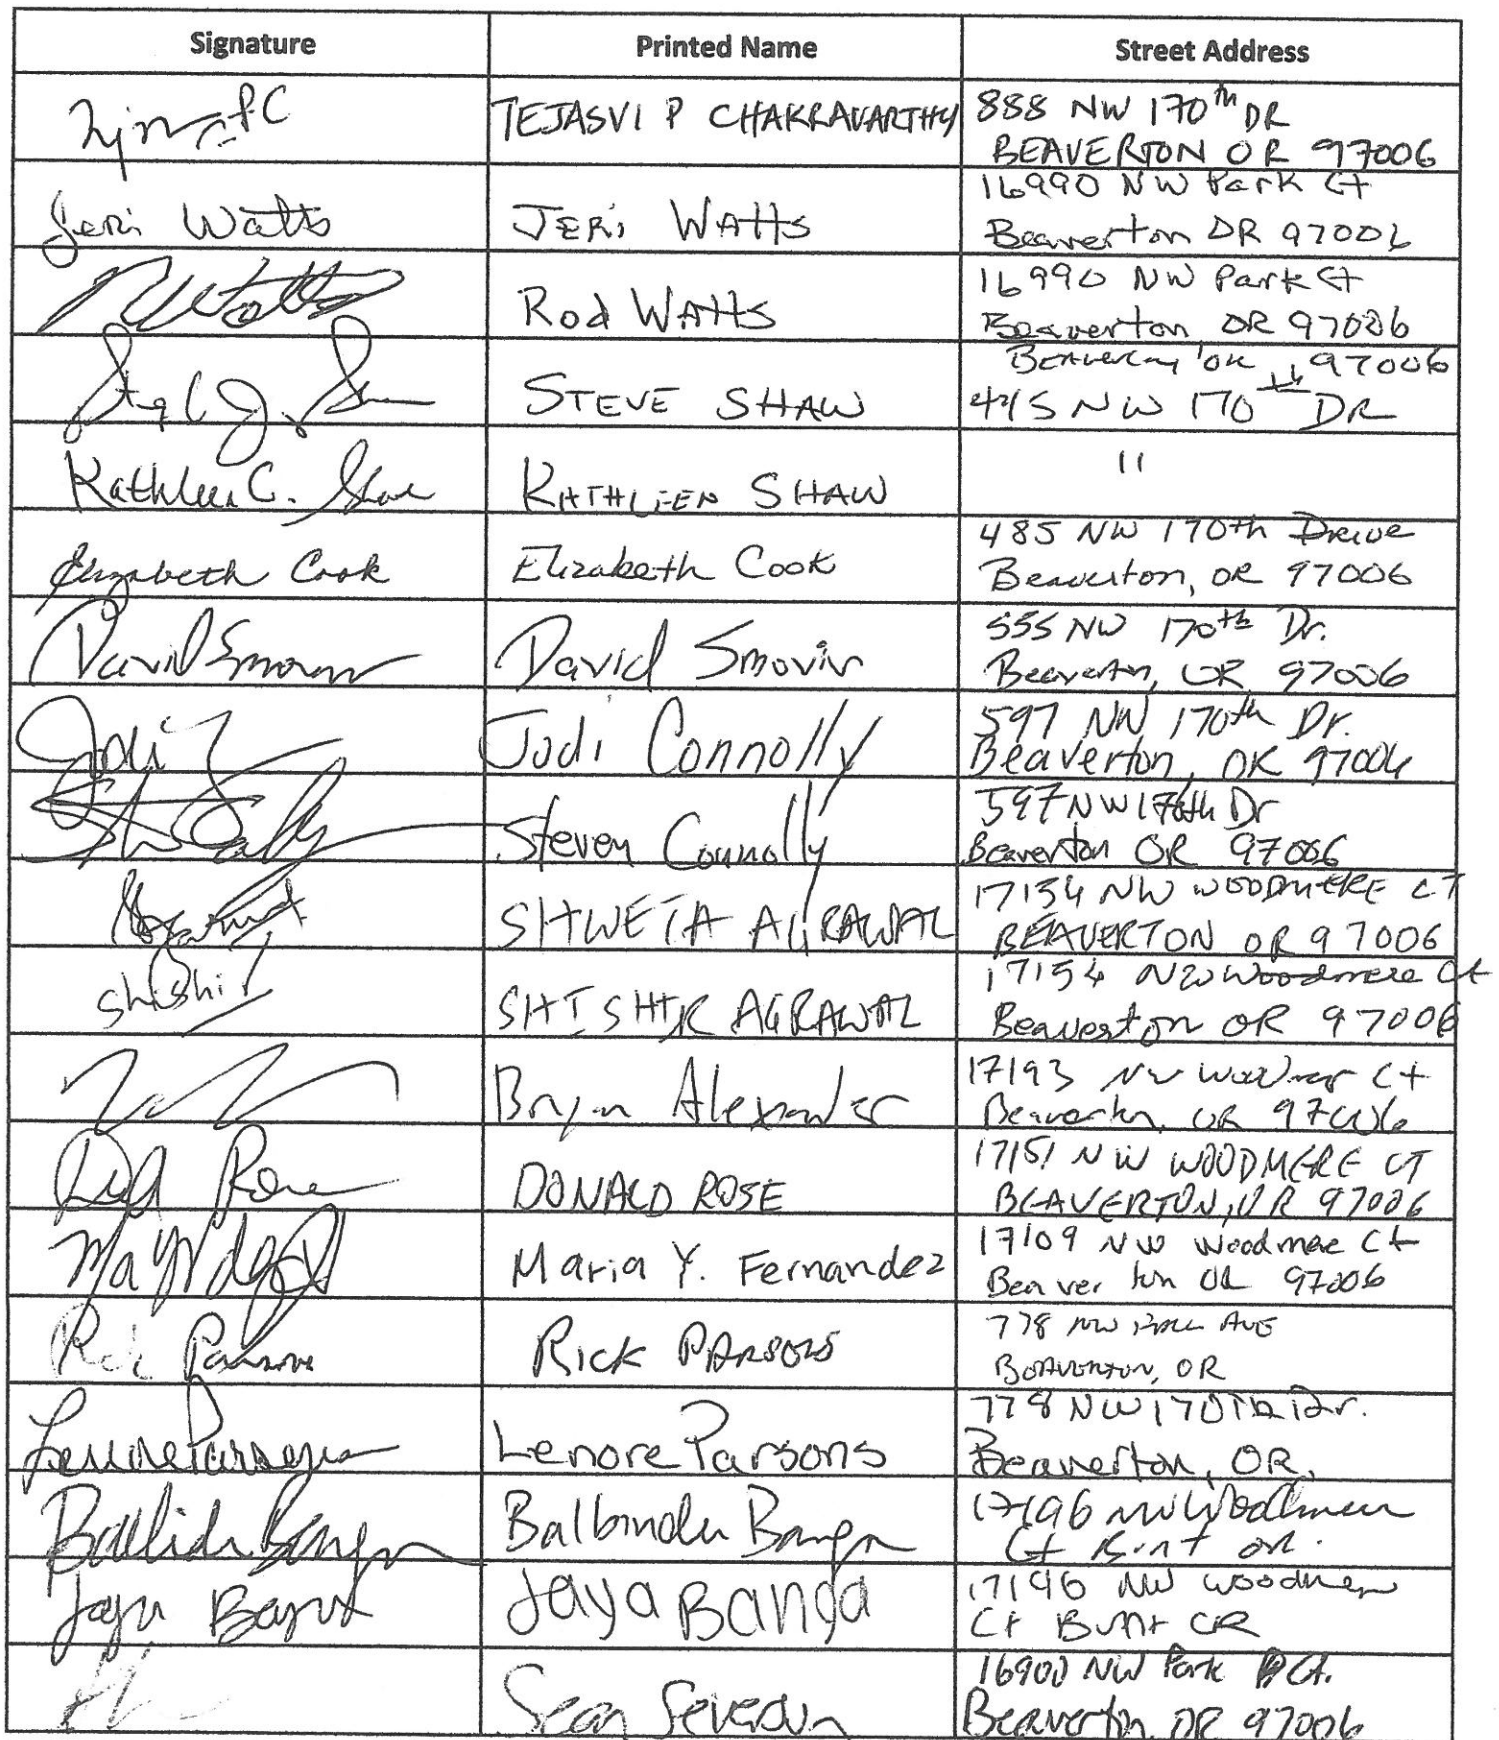 Signature Printed Name Street Address
TEJASVI P CHAKRAVARTHY 888 NW 170th DR
BEAVERTON OR 97006
Jeri Watts JERi WAttS 16990 NW Park Ct
Beaverton OR 97006
RWatts Rod WAttS 16990 NW Park Ct
Beaverton, OR 97006
Beaverton OR 97006
STEVE SHAW 445 NW 170th DR
Kathleen C. Shaw KATHLEEN SHAW 11
Elizabeth Cook Elizabeth Cook 485 NW 170th Drive
Beaverton, OR 97006
David Smovir David Smovir 555 NW 170th Dr.
Beaverton, OR 97006
Jodi Jodi Connolly 597 NW 170th Dr.
Beaverton, OR 97006
Steven Connolly 597 NW 170th Dr
Beaverton OR 97006
SHWETA AGRAWAL 17154 NW WOODMERE CT
BEAVERTON OR 97006
Shishir SHISHIR AGRAWAL 17154 NW Woodmere Ct
Beaverton OR 97006
Bryan Alexander 17193 NW Woodmere Ct
Beaverton, OR 97006
Rose DONALD ROSE 17151 NW WOODMERE CT
BEAVERTON, OR 97006
Maria Y. Fernandez 17109 NW Woodmere Ct
Beaverton OR 97006
Rick Parsons RICK PARSONS 778 NW AVE
BEAVERTON, OR
Lenore Parsons Lenore Parsons 778 NW 170th Dr.
Beaverton, OR,
Balbinder Banga Balbinder Banga 17196 NW Woodmere
Ct OR.
Jaya Banga Jaya Banga 17196 NW Woodmere
Ct OR
Sean Severson 16900 NW Park Ct.
Beaverton, OR 97006